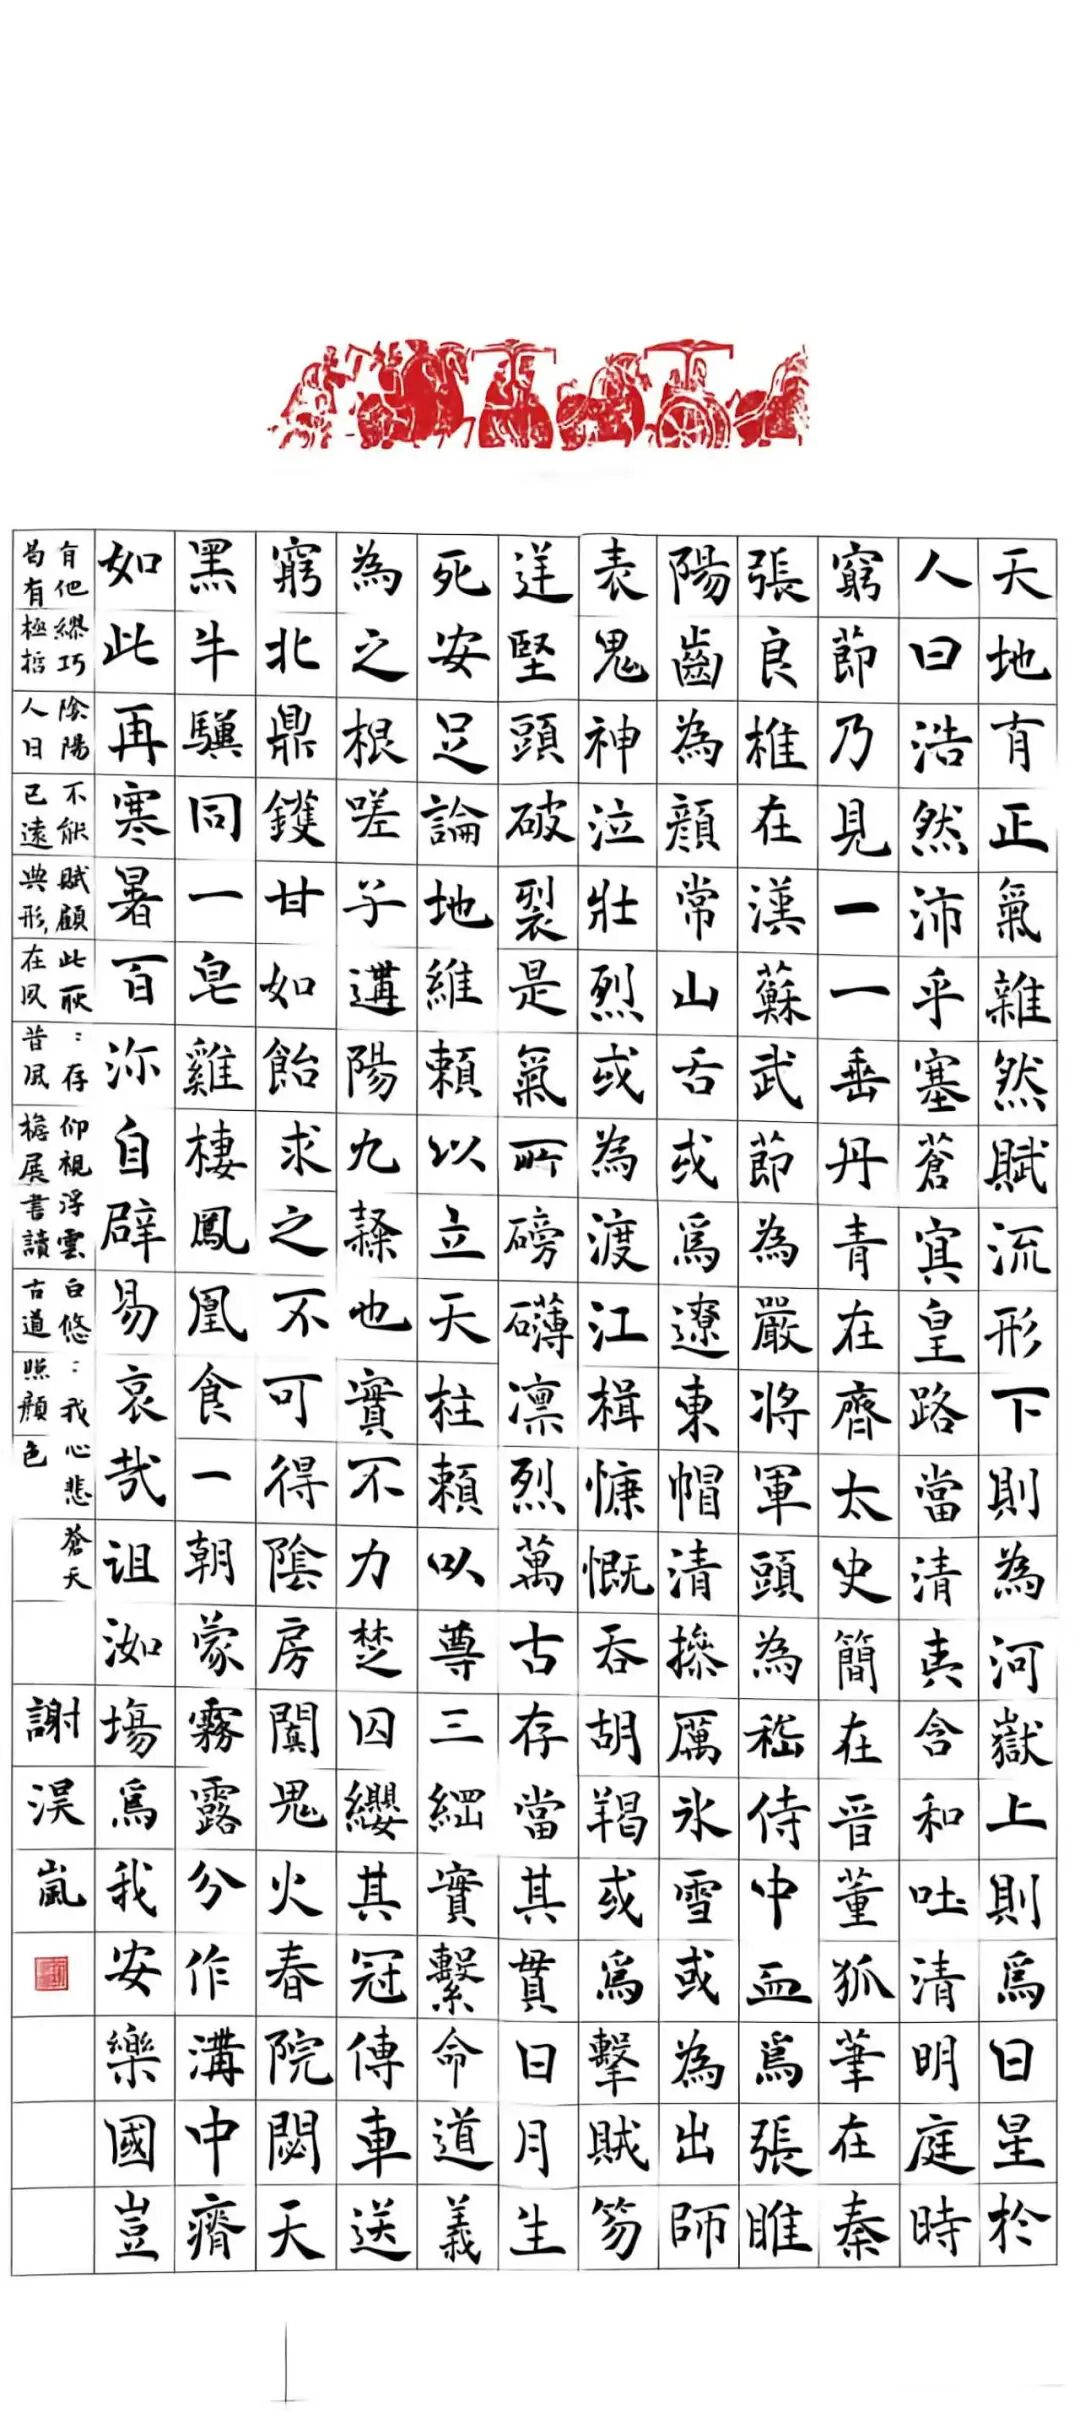 天地有正氣雜然賦流形下則為河嶽上則爲日星於
人曰浩然沛乎塞蒼冥皇路當清夷含和吐清明庭時
窮節乃見一一垂丹青在齊太史簡在晉董狐筆在秦
張良椎在漢蘇武節為嚴將軍頭為嵇侍中血爲張睢
陽齒為顏常山舌或爲遼東帽清操厲氷雪或為出師
表鬼神泣壯烈或為渡江楫慷慨吞胡羯或爲擊賊笏
逆竪頭破裂是氣所磅礴凛烈萬古存當其貫日月生
死安足論地維賴以立天柱賴以尊三綱實繫命道義
為之根嗟予遘陽九隸也實不力楚囚纓其冠傳車送
窮北鼎鑊甘如飴求之不可得陰房闐鬼火春院閟天
黑牛驥同一皂雞棲鳳凰食一朝蒙霧露分作溝中瘠
如此再寒暑百沴自辟易哀哉沮洳場爲我安樂國豈
有他繆巧陰陽不能賊顧此耿:存仰視浮雲白悠:我心悲蒼天
曷有極哲人日已遠典形在夙昔風檐展書讀古道照顏色
謝淏嵐